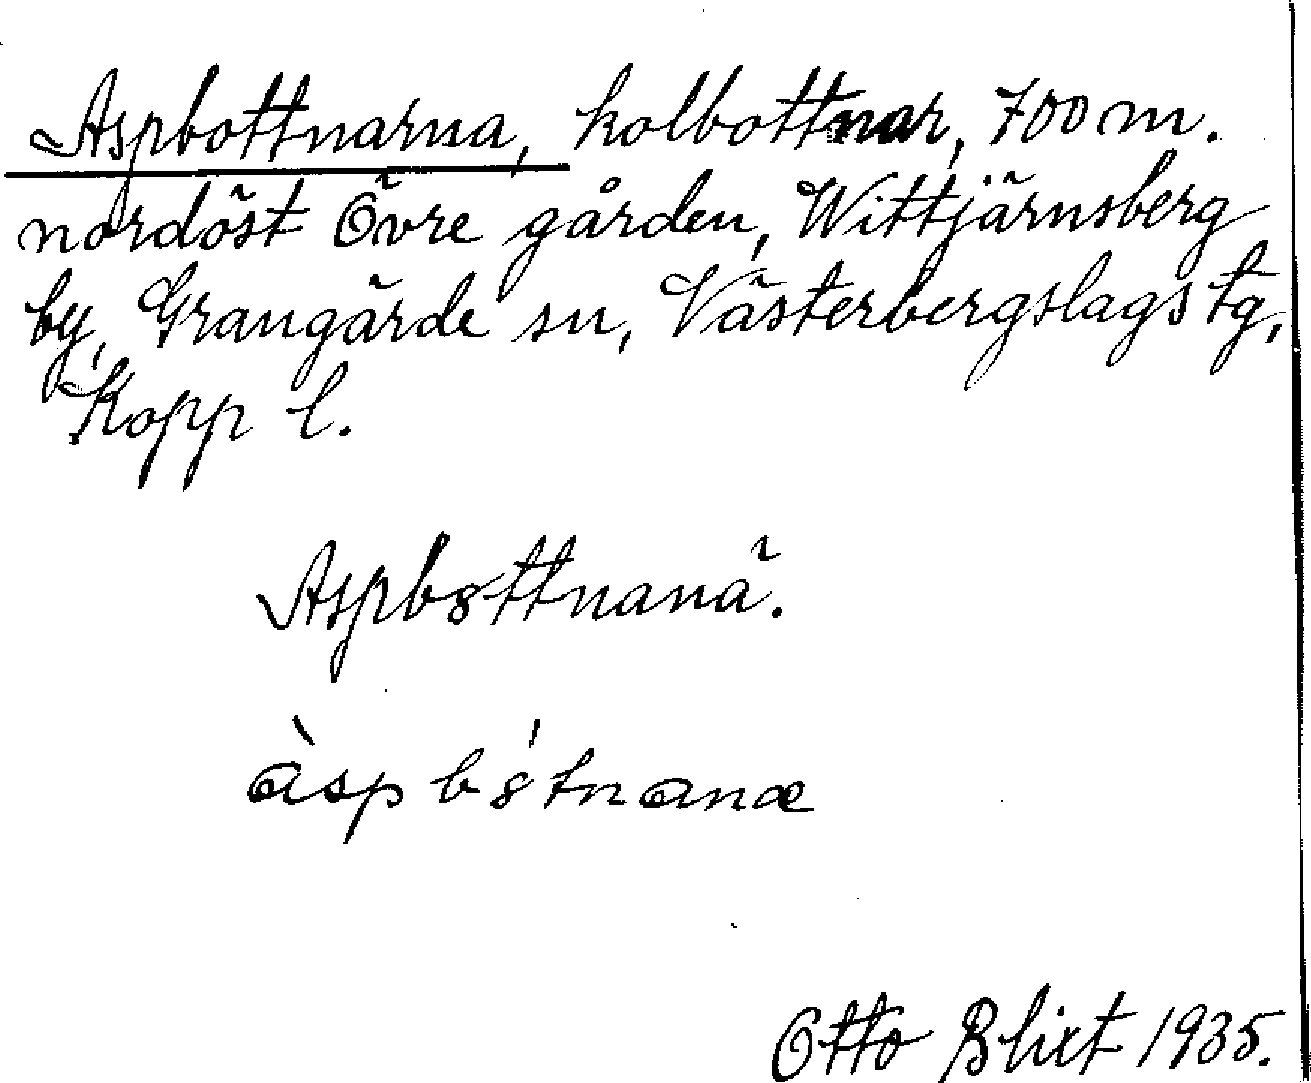 Aspbottnarna, kolbottnar, 700 m.
nordöst Övre gården, Wittjärnsberg
by, Grangärde sn, Västerbergslags tg,
Kopp l.
Aspb8ttnanä.
àspb8́tnanæ
Otto Blixt 1935.